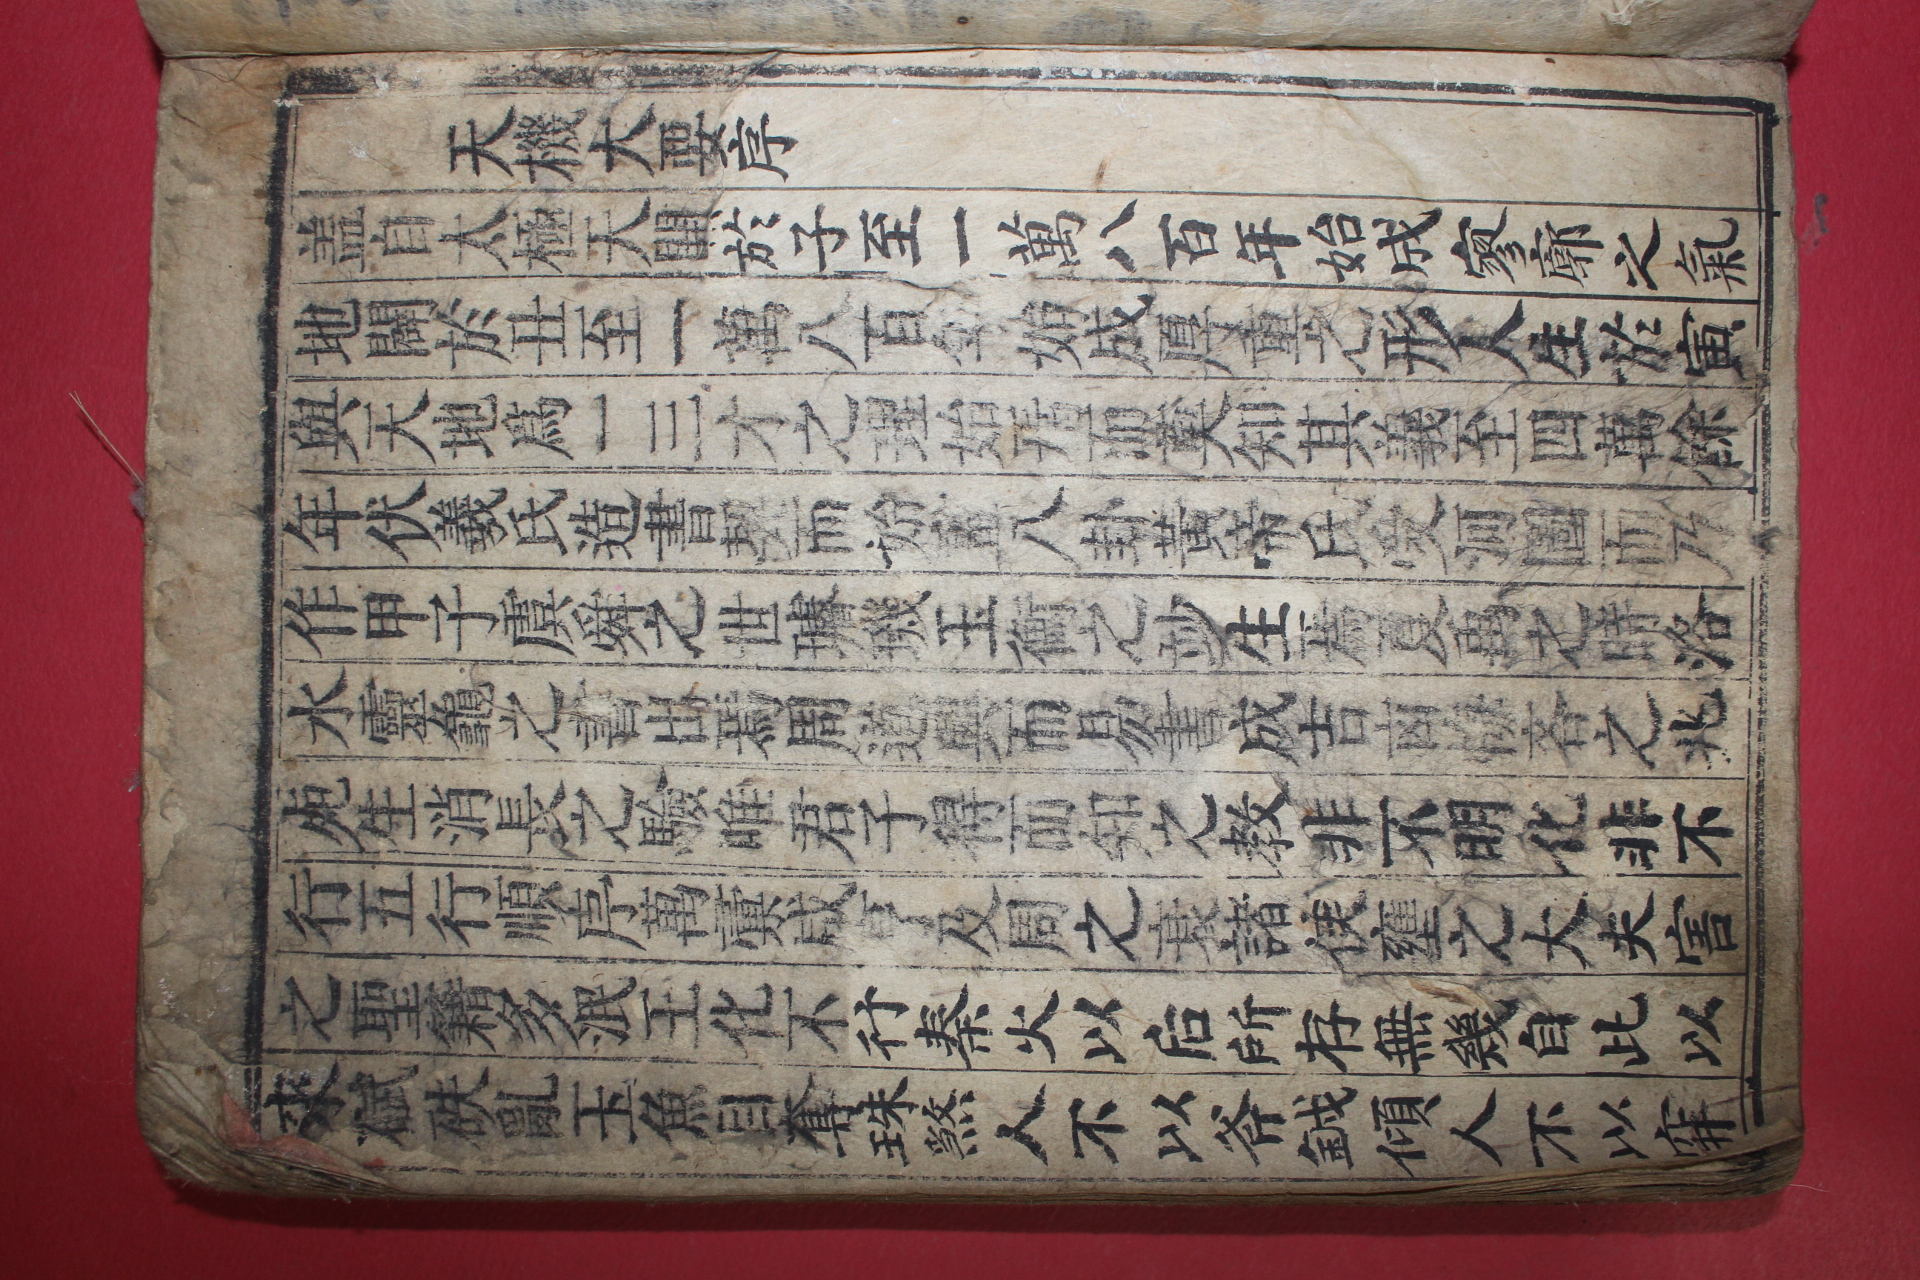 天機大要序
盖自太極天開於子至一萬八百年始成寥廓之氣
地闢於丑至一萬八百年始成厚重之形人生於寅
與天地爲一三才之理始焉而莫知其義至四萬餘
年伏羲氏造書契而始畫八卦黃帝氏受河圖而乃
作甲子虞舜之世璿璣玉衡之妙生焉夏禹之時洛
水靈龜之書出焉周道興而易書成吉凶悔吝之兆
死生消長之驗唯君子得而知之教非不明化非不
行五行順序萬彙咸亨及周之衰諸侯壅之大夫害
之聖籍多泯王化不行秦火以后所存無幾自此以
來碔砆亂玉魚目奪珠煞人不以斧鉞傾人不以穽